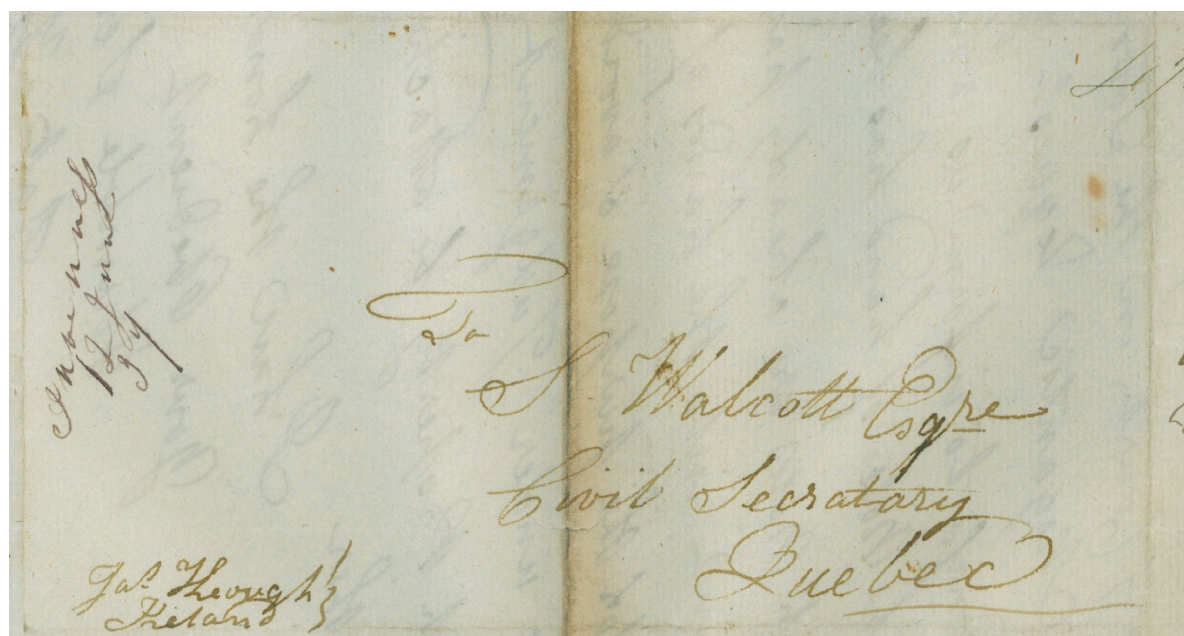 Inverness
12 June
37
4/
To
S Walcott Esqre
Civil Secratary
Quebec
Jas Keough
Ireland